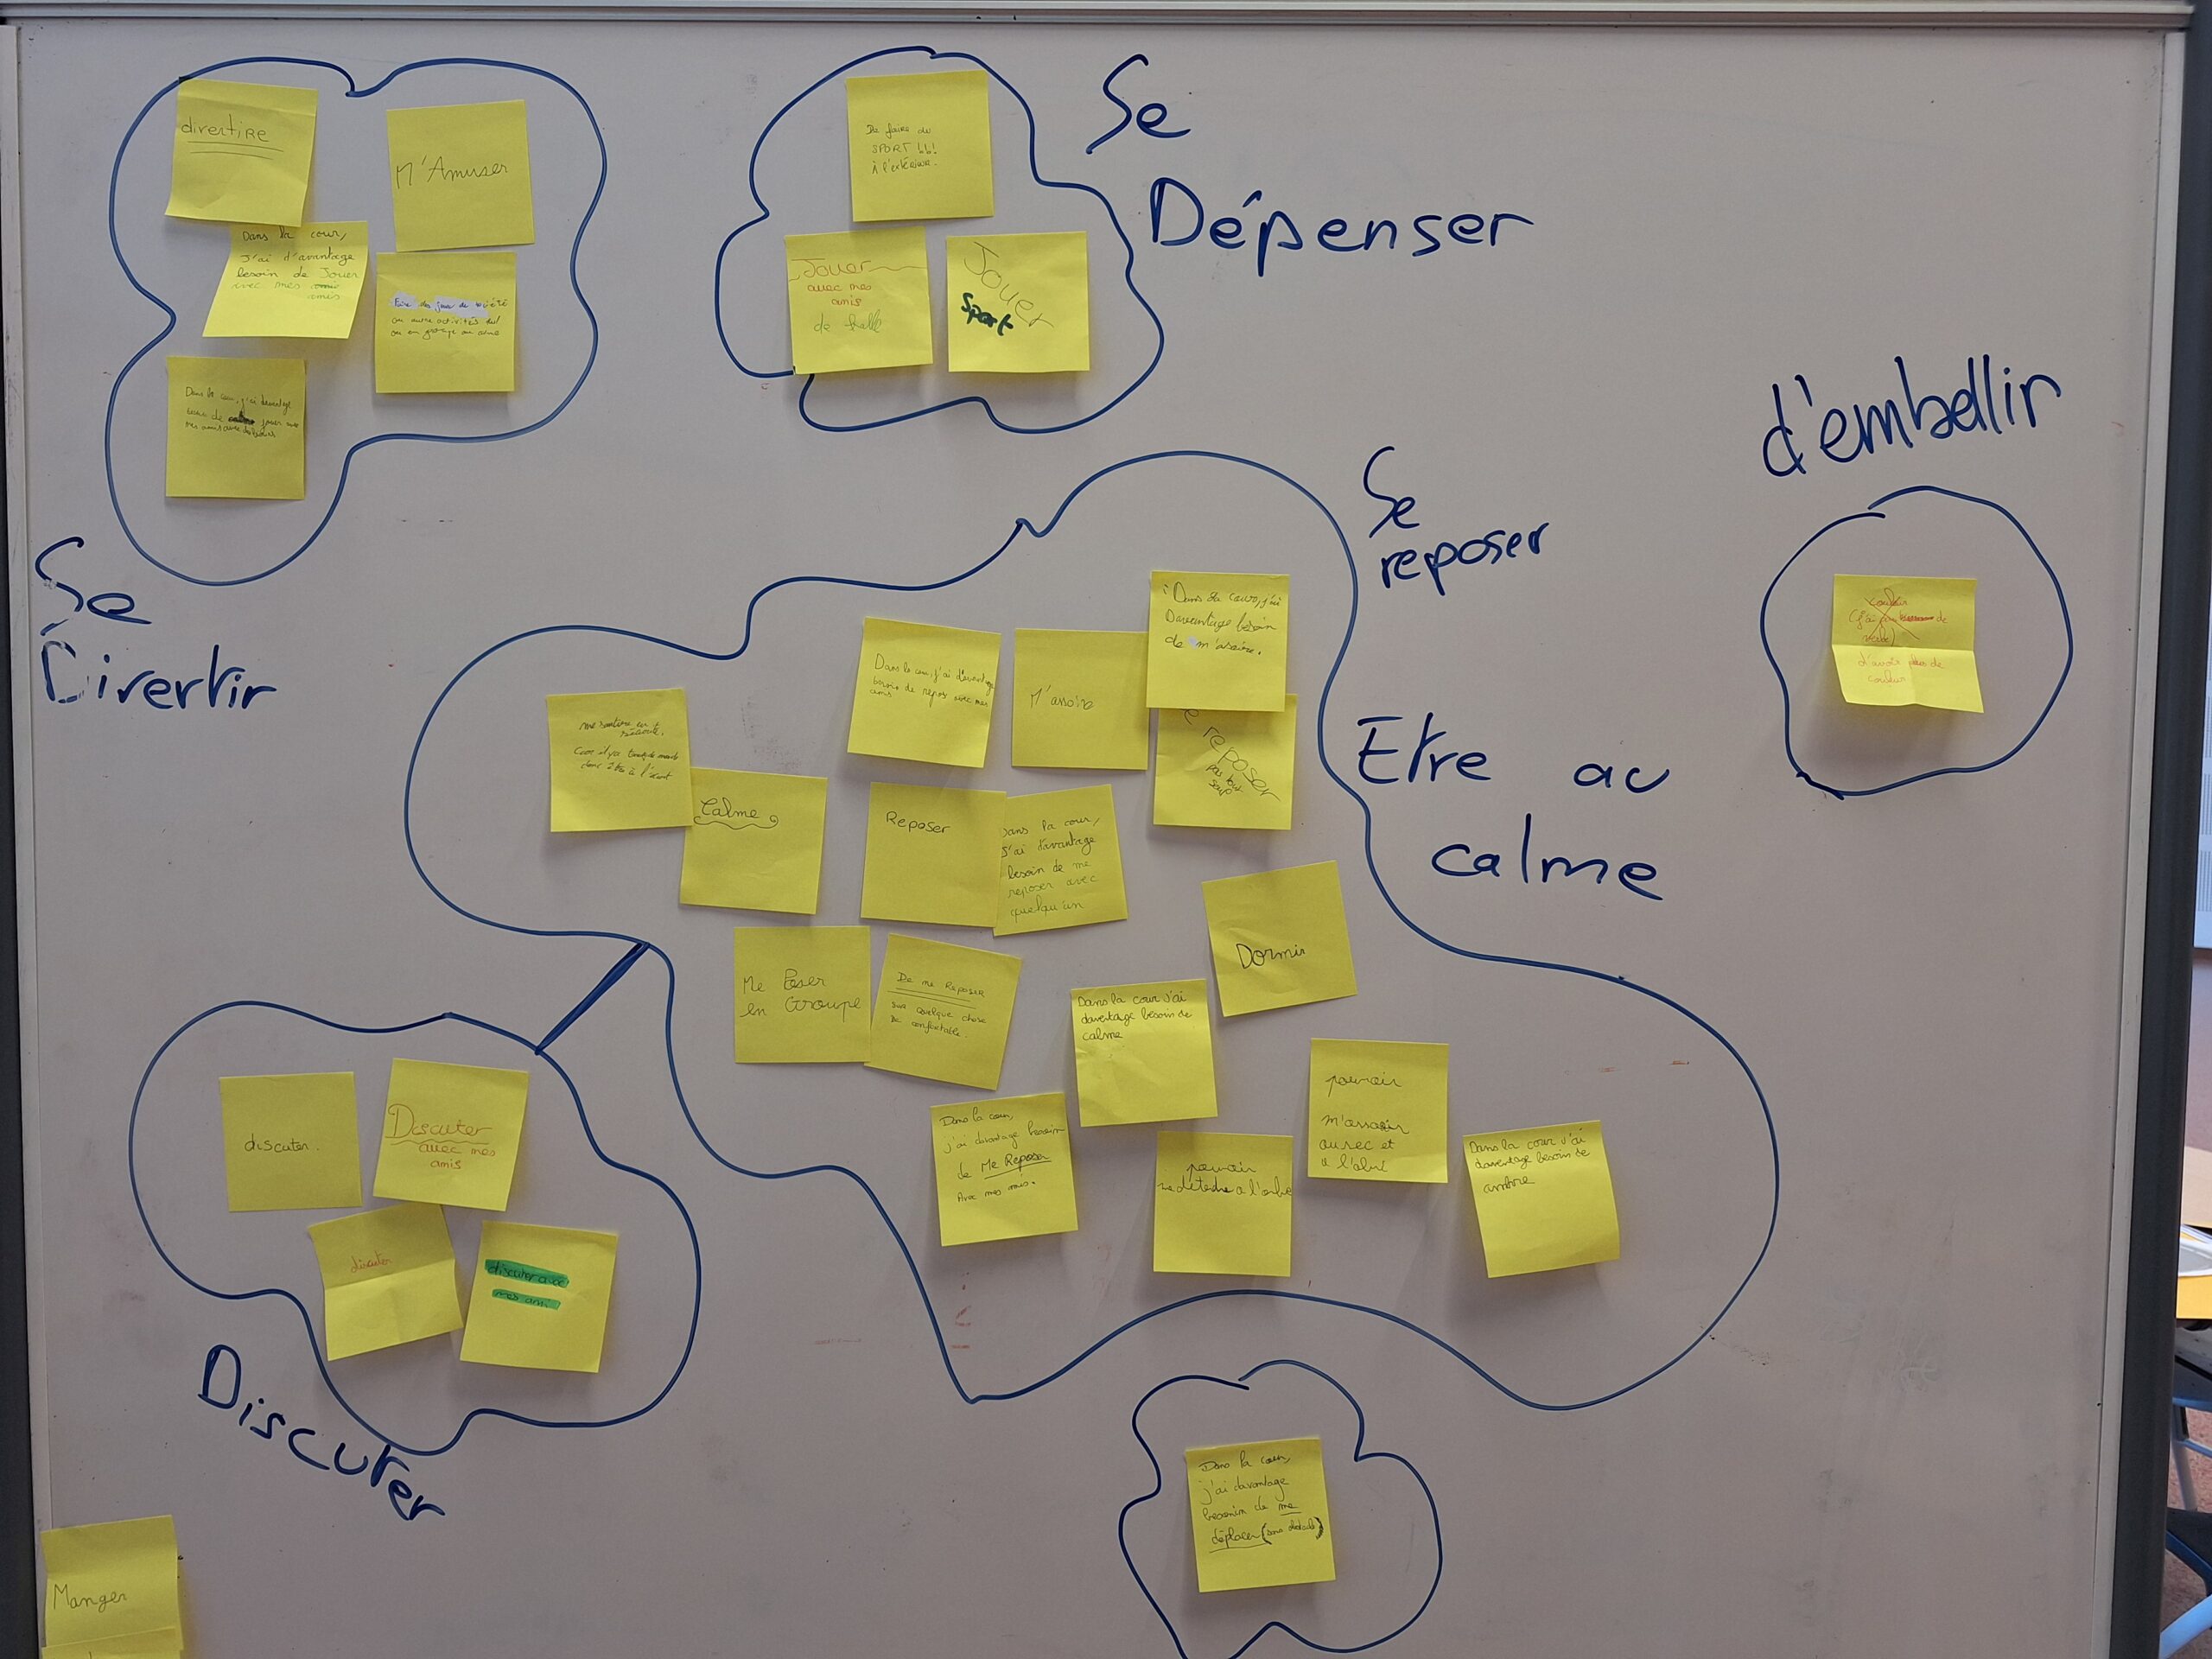 divertire
M'Amuser
Dans la cour,
J'ai d'avantage
besoin de Jouer
avec mes
amis
Faire des jeux de société
ou autre activités
ou en groupe au calme
Dans la cour, j'ai davantage
jouer
mes amis
Se
Divertir
De faire du
SPORT !!!
à l'extérieur.
Jouer
avec mes
amis
de balle
Jouer
Sport
Se
Dépenser
d'embellir
d'avoir plus de
couleur
Se
reposer
Etre au
calme
Dans la cour, j'ai
Davantage besoin
de m'assoire.
Dans la cour, j'ai d'avantage
besoin de repos avec mes
amis
M'assoire
reposer
pas tout
seul
me mettre en
sécurité.
monde
à l'écart
Calme
Reposer
Dans la cour,
J'ai d'avantage
besoin de me
reposer avec
quelqu'un
Dormir
Me Poser
en Groupe
De me Reposer
sur quelque chose
De confortable
Dans la cour j'ai
davantage besoin de
calme
pouvoir
m'assoir
au sec et
a l'abri
Dans la cour,
j'ai davantage besoin
de Me Reposer
Avec mes amis.
pouvoir
me détendre a l'ombre
Dans la cour j'ai
davantage besoin de
discuter.
Discuter
avec mes
amis
discuter
discuter avec
mes ami
Discuter
Dans la cour,
j'ai davantage
besoin de me
déplacer (sans obstacle)
Manger